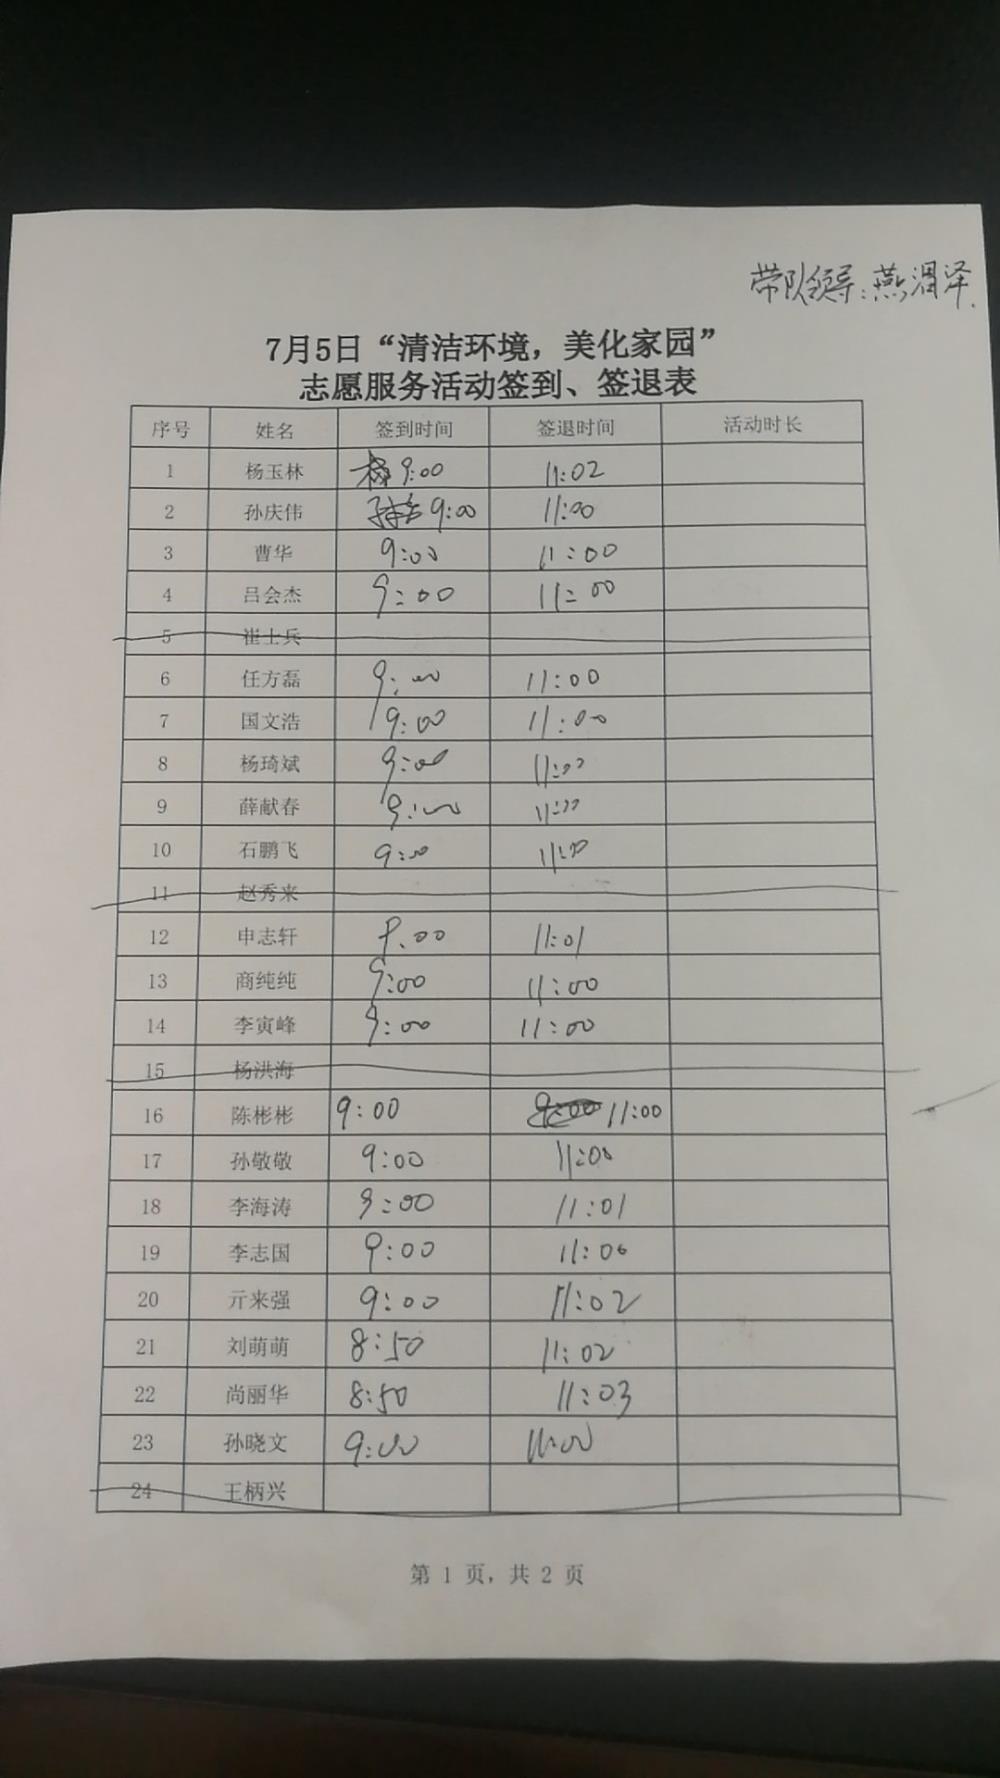 带队领导：燕润泽
7月5日“清洁环境，美化家园”
志愿服务活动签到、签退表
序号 姓名 签到时间 签退时间 活动时长
1 杨玉林 9:00 11:02
2 孙庆伟 9:00 11:00
3 曹华 9:00 11:00
4 吕会杰 9:00 11:00
5 崔士兵
6 任方磊 9:00 11:00
7 国文浩 9:00 11:00
8 杨琦斌 9:00 11:00
9 薛献春 9:00 11:00
10 石鹏飞 9:00 11:00
11 赵秀来
12 申志轩 9.00 11:01
13 商纯纯 9:00 11:00
14 李寅峰 9:00 11:00
15 杨洪海
16 陈彬彬 9:00 9:00 11:00
17 孙敬敬 9:00 11:00
18 李海涛 9:00 11:01
19 李志国 9:00 11:00
20 亓来强 9:00 11:02
21 刘萌萌 8:50 11:02
22 尚丽华 8:50 11:03
23 孙晓文 9:00 11:00
24 王柄兴
第 1 页，共 2 页